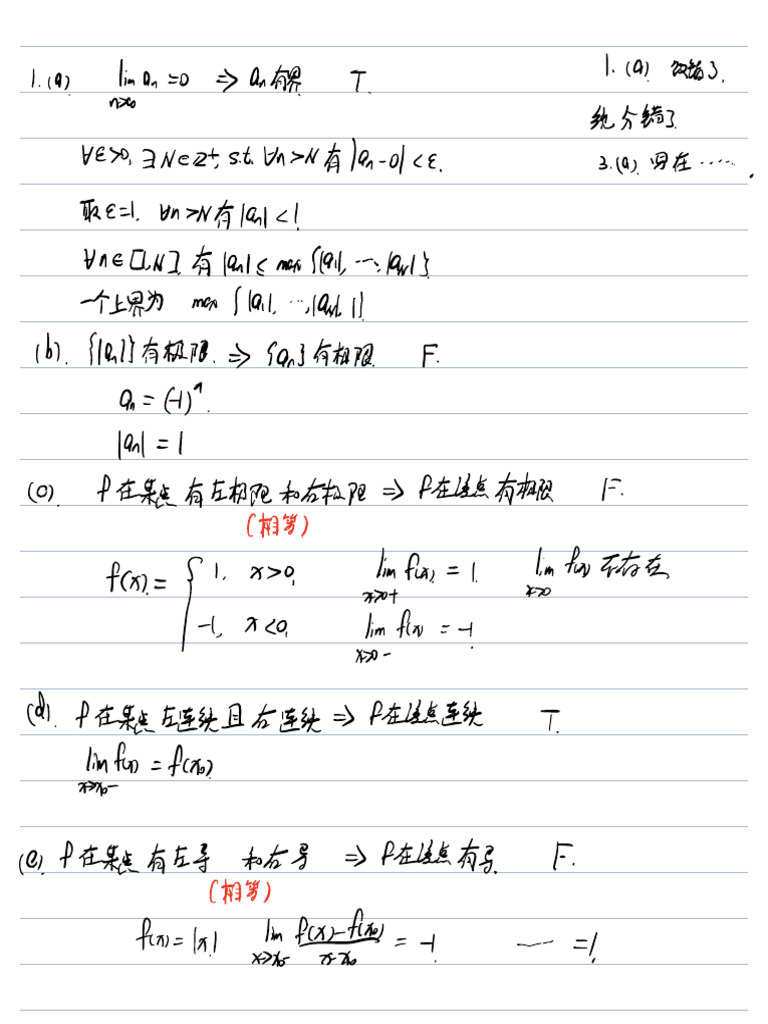 1.(a) lim an = 0 ⇒ an 有界 T.
n→∞
1.(a) 改错了.
统分错了
3.(a) 写在 …… .
∀ε>0, ∃N∈Z⁺, s.t. ∀n>N 有 |an-0|<ε.
取 ε=1, ∀n>N 有 |an|<1
∀n∈[1,N], 有 |an|≤ max {|a1|, …, |aN|}
一个上界为 max {|a1|, …, |aN|, 1}
(b). {|an|} 有极限 ⇒ {an} 有极限 F.
an = (-1)ⁿ.
|an| = 1
(c). f 在某点 有左极限 和右极限 ⇒ f 在该点 有极限 F.
(相等)
f(x) = { 1, x>0, lim f(x) = 1. lim f(x) 不存在
x→0+ x→0
-1, x<0, lim f(x) = -1
x→0-
(d). f 在某点 左连续 且 右连续 ⇒ f 在该点连续 T.
lim f(x) = f(x₀)
x→x₀-
(e) f 在某点 有左导 和右导 ⇒ f 在该点 有导 F.
(相等)
f(x) = |x| lim f(x)-f(x₀) / x-x₀ = -1 …… = 1.
x→x₀-